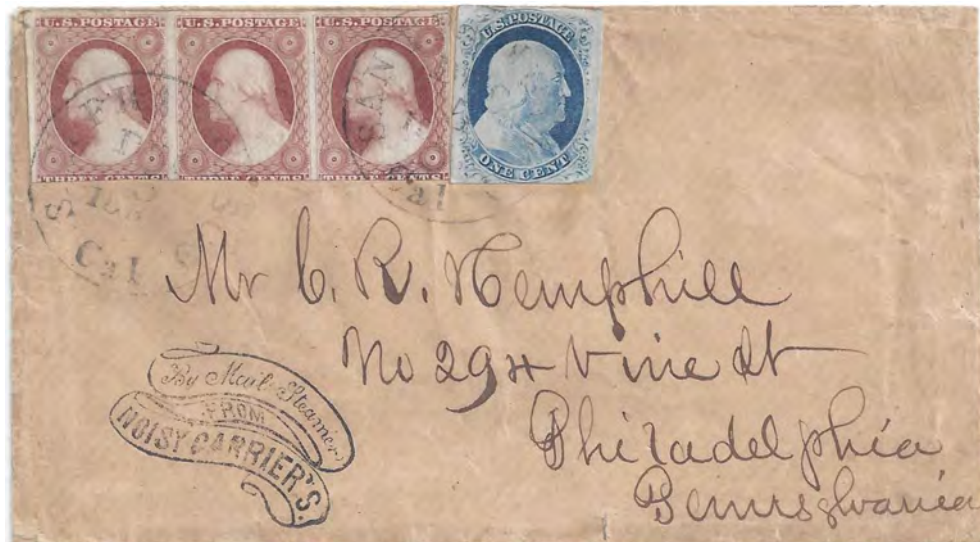 U.S. POSTAGE
THREE CENTS
U.S. POSTAGE
THREE CENTS
U.S. POSTAGE
THREE CENTS
U.S. POSTAGE
ONE CENT
SAN
Cal
Mr C. R. Hemphill
No 294 Vine St
Philadelphia
Pennsylvania
By Mail Steamer
FROM
NOISY CARRIER'S.